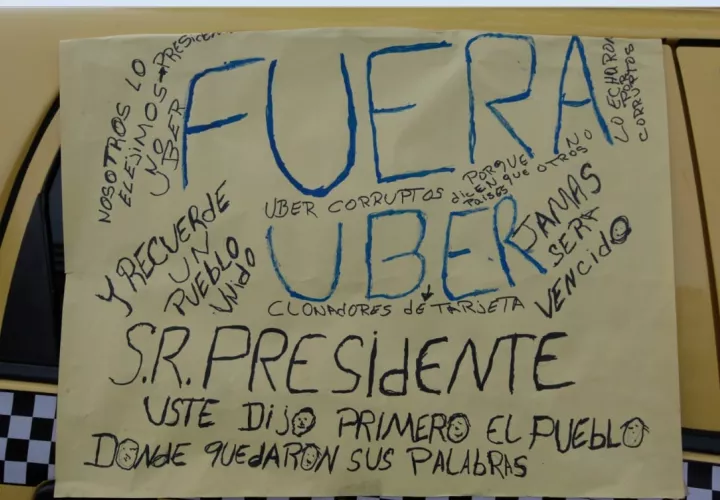 NOSOTROS LO
ELEJIMOS PRESIDEN
NO
UBER
FUERA
LO ECHARON
POR
CORRUPTOS
UBER CORRUPTOS
PORQUE
dicEN que OTROS
PAISES NO
Y RECUERdE
UN
PUEbLO
UNIdO
UBER
JAMAS
SERA
VENCIdO
CLONADORES dE TARJETA
S.R. PRESIdENTE
USTE DIJO PRIMERO EL PUEbLO
DONdE QUEdARON SUS PALAbRAS